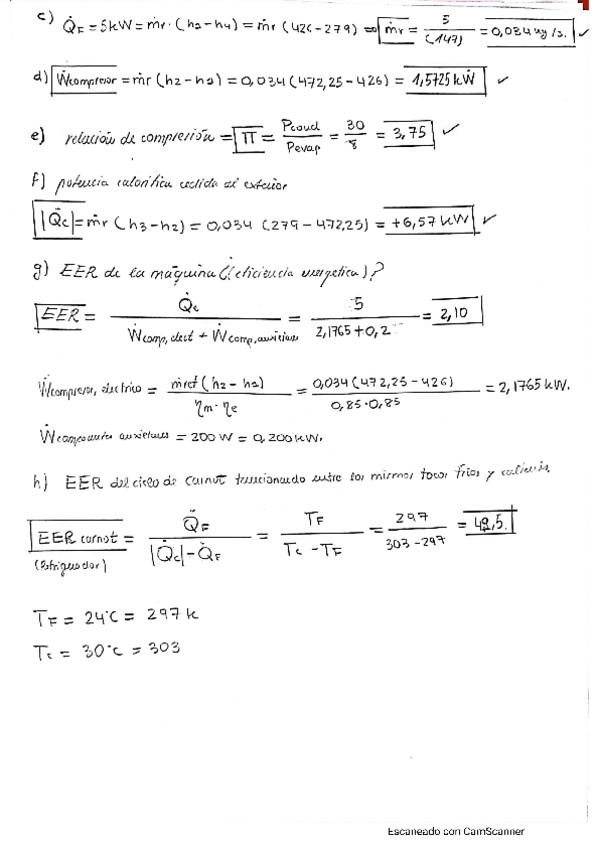 c) Q̇F = 5kW = ṁr · (h2 - h4) = ṁr (426 - 279) => ṁr = 5 / (147) = 0,034 kg/s. ✓
d) Ẇcompresor = ṁr (h2 - h2) = 0,034 (472,25 - 426) = 1,5725 kW ✓
e) relación de compresión = Π = Pcond / Pevap = 30 / 8 = 3,75 ✓
f) potencia calorífica cedida al exterior
|Q̇c| = ṁr (h3 - h2) = 0,034 (279 - 472,25) = +6,57 kW ✓
g) EER de la máquina (¿eficiencia energética)?
EER = Q̇c / Ẇcomp, elect + Ẇcomp, auxiliares = 5 / 2,1765 + 0,2 = 2,10
Ẇcompresor, electrico = ṁref (h2 - h2) / ηm · ηe = 0,034 (472,25 - 426) / 0,85 · 0,85 = 2,1765 kW.
auxiliares = 200 W = 0,200 kW.
h) EER del ciclo de Carnot funcionando entre los mismos focos fríos y calientes.
EER carnot = Q̇F / |Q̇c| - Q̇F = TF / Tc - TF = 297 / 303 - 297 = 49,5.
(Refrigerador)
TF = 24°C = 297 k
Tc = 30°C = 303
Escaneado con CamScanner